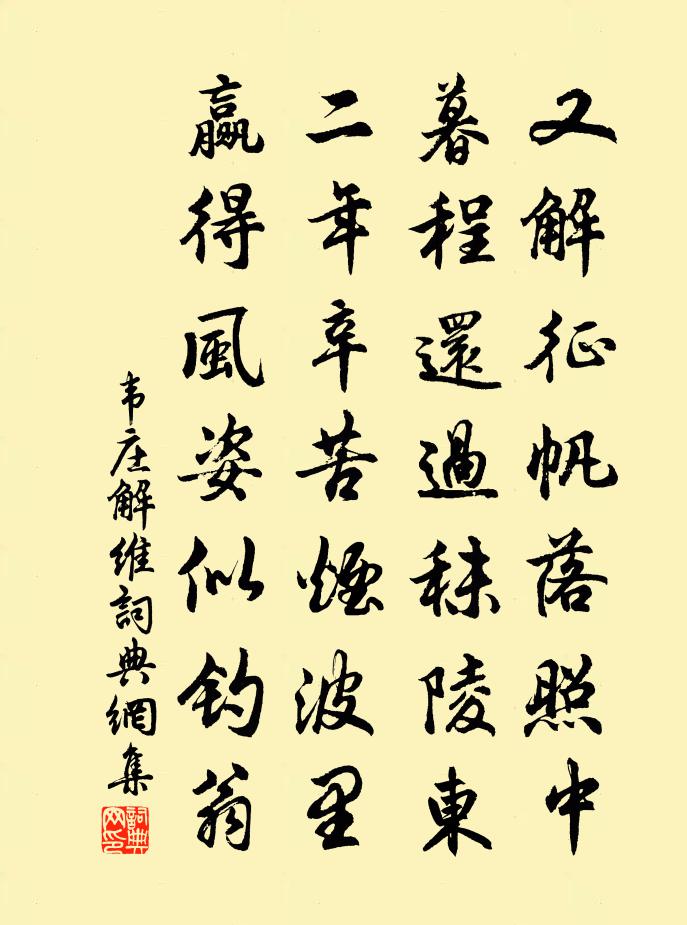 又解征帆落照中
暮程還過秣陵東
二年辛苦煙波里
贏得風姿似釣翁
韦庄解維詞典網集
詞典网印